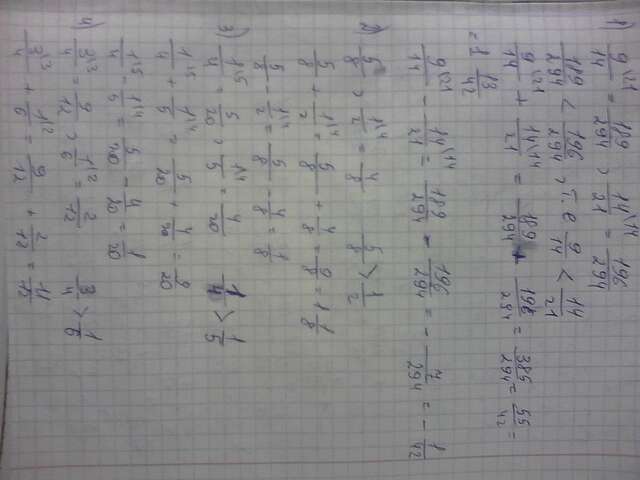 1)
9\21/14 = 189/294 , 14\14/21 = 196/294
189/294 < 196/294 , т.е 9/14 < 14/21
9\21/14 + 14\14/21 = 189/294 + 196/294 = 385/294 = 55/42 =
= 1 13/42
9\21/14 - 14\14/21 = 189/294 - 196/294 = - 7/294 = - 1/42
2)
5/8 , 1\4/2 = 4/8 5/8 > 1/2
5/8 + 1\4/2 = 5/8 + 4/8 = 9/8 = 1 1/8
5/8 - 1\4/2 = 5/8 - 4/8 = 1/8
3)
1\5/4 = 5/20 , 1\4/5 = 4/20 1/4 > 1/5
1\5/4 + 1\4/5 = 5/20 + 4/20 = 9/20
1\5/4 - 1\4/5 = 5/20 - 4/20 = 1/20
4)
3\3/4 = 9/12 , 1\2/6 = 2/12 3/4 > 1/6
3\3/4 + 1\2/6 = 9/12 + 2/12 = 11/12